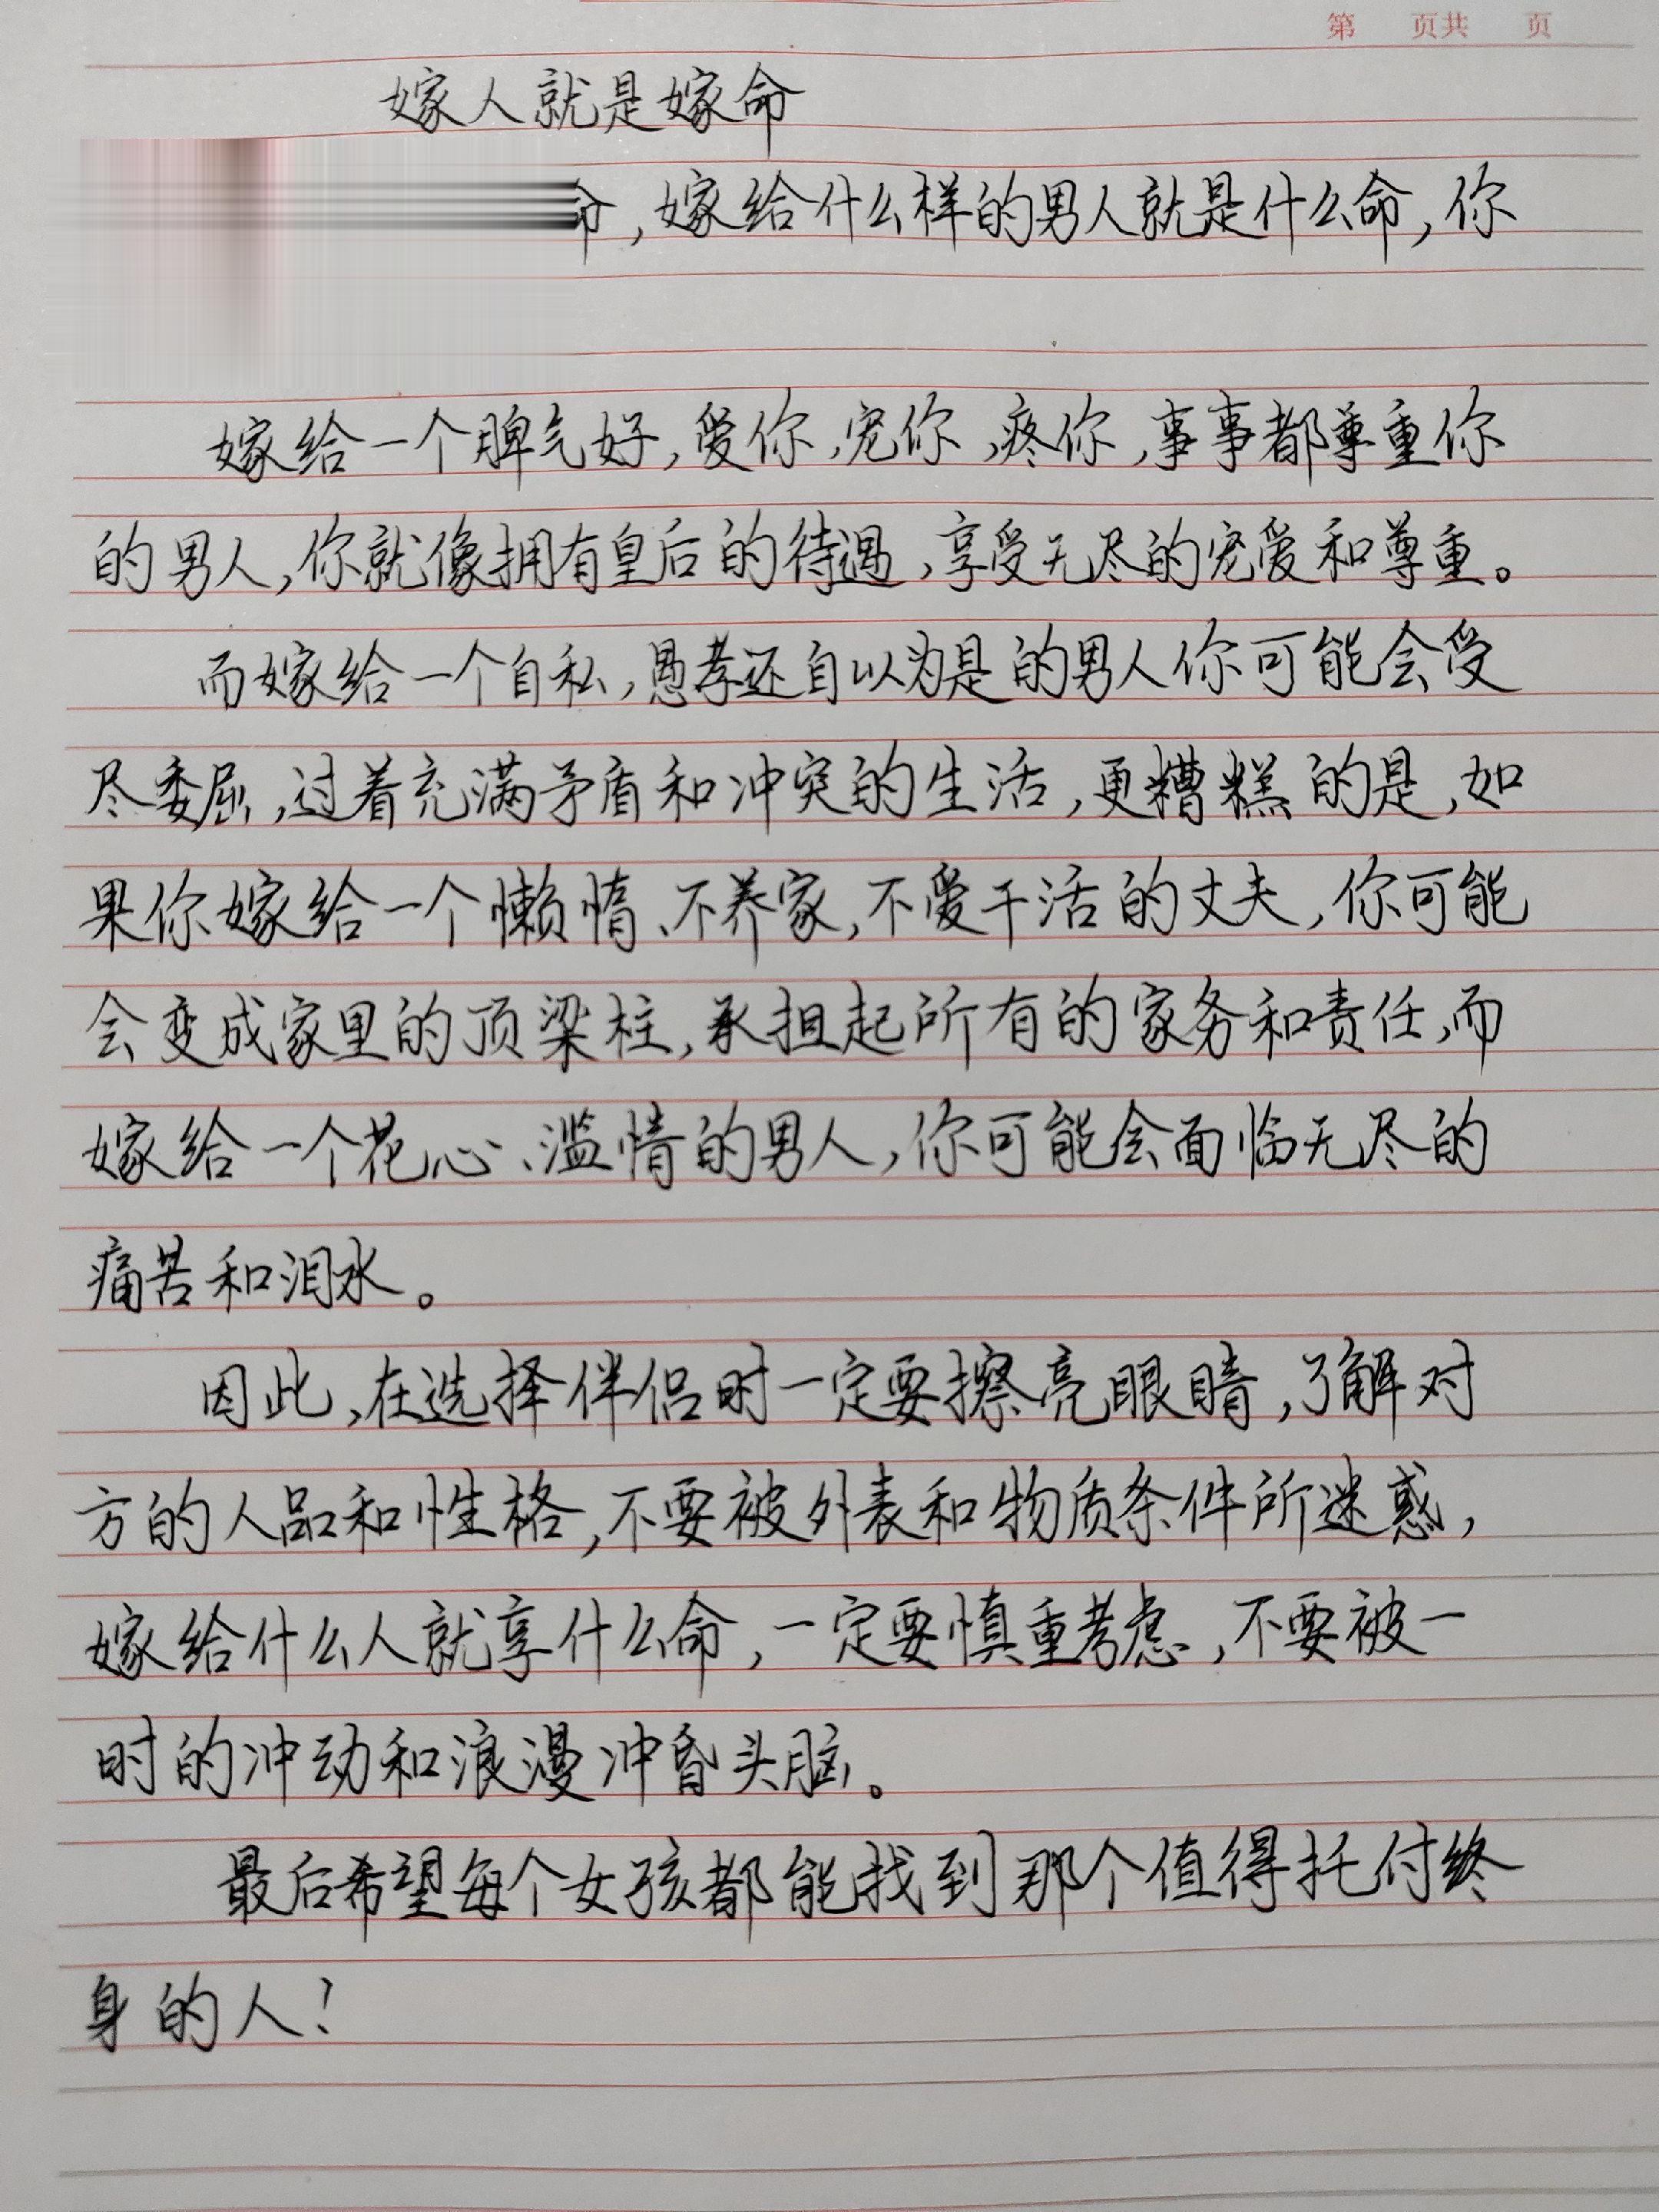 第 页共 页
嫁人就是嫁命
命,嫁给什么样的男人就是什么命,你
嫁给一个脾气好,爱你,宠你,疼你,事事都尊重你
的男人,你就像拥有皇后的待遇,享受无尽的宠爱和尊重。
而嫁给一个自私,愚孝还自以为是的男人你可能会受
尽委屈,过着充满矛盾和冲突的生活,更糟糕的是,如
果你嫁给一个懒惰、不养家,不爱干活的丈夫,你可能
会变成家里的顶梁柱,承担起所有的家务和责任,而
嫁给一个花心、滥情的男人,你可能会面临无尽的
痛苦和泪水。
因此,在选择伴侣时一定要擦亮眼睛,了解对
方的人品和性格,不要被外表和物质条件所迷惑,
嫁给什么人就享什么命,一定要慎重考虑,不要被一
时的冲动和浪漫冲昏头脑。
最后希望每个女孩都能找到那个值得托付终
身的人!